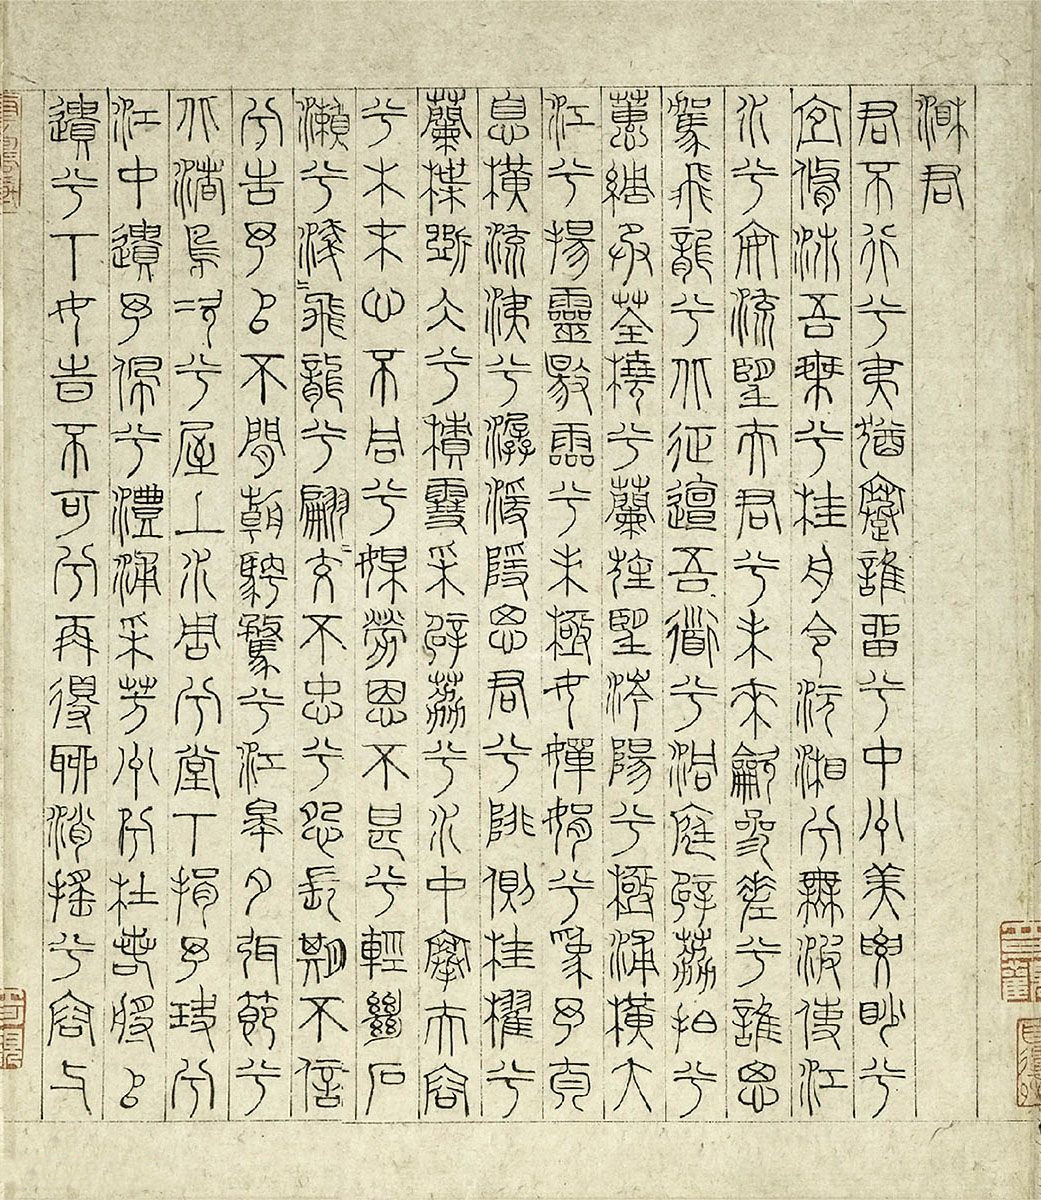 湘君
君不行兮夷猶蹇誰留兮中州美要眇兮
宜脩沛吾乘兮桂舟令沅湘兮無波使江
水兮安流望夫君兮未來龡參差兮誰思
駕飛龍兮北征邅吾道兮洞庭薜荔拍兮
蕙綢承荃橈兮蘭旌望涔陽兮極浦橫大
江兮揚靈敭霝兮未極女嬋媛兮為予
息橫流洟兮潺湲隱思君兮陫側桂櫂兮
蘭枻斲冰兮積雪采薜荔兮水中搴夫容
兮木末心不同兮媒勞恩不甚兮輕絕石
瀨兮淺〻飛龍兮翩〻交不忠兮怨長期不信
兮告予以不閒朝騁騖兮江皋夕弭節兮
北渚鳥次兮屋上水周兮堂下捐予玦兮
江中遺予佩兮澧浦采芳州兮杜若將以
遺兮下女時不可兮再得聊消搖兮容與